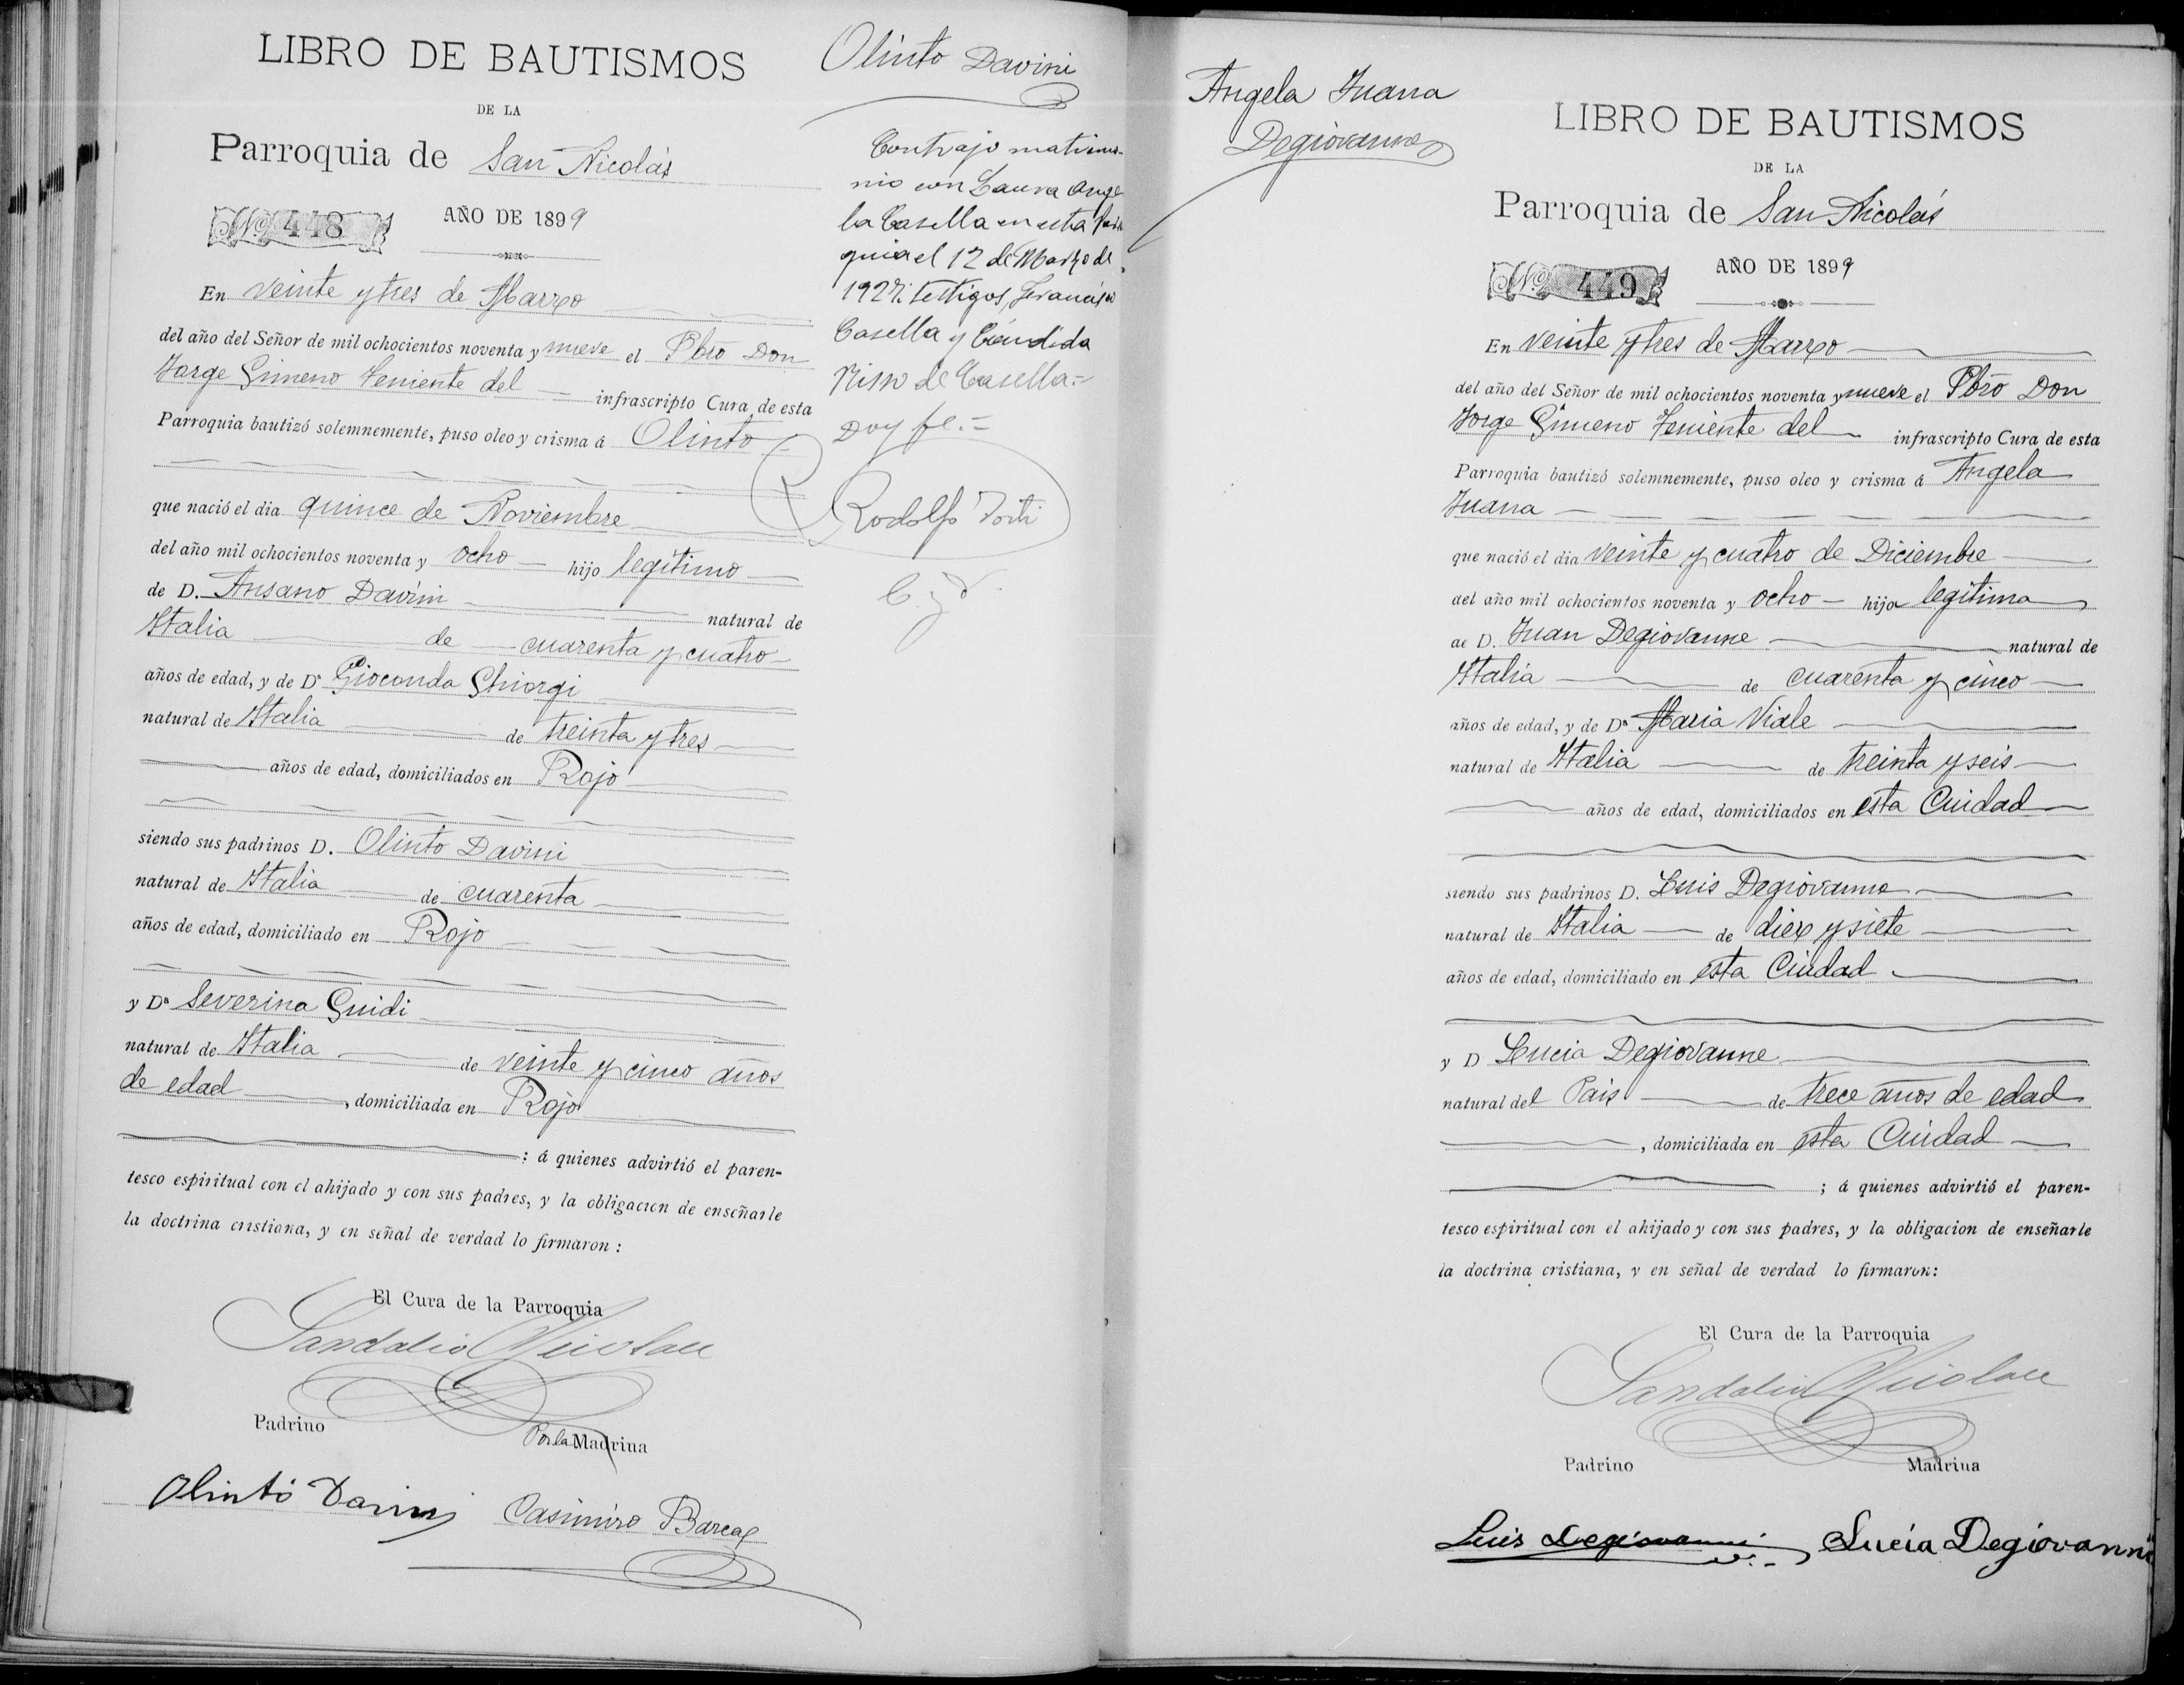 LIBRO DE BAUTISMOS
DE LA
Parroquia de San Nicolás
No. 448
AÑO DE 1899
En veinte y tres de Marzo
del año del Señor de mil ochocientos noventa y nueve el Pbro Don
Jorge Gimeno Teniente del infrascripto Cura de esta
Parroquia bautizó solemnemente, puso oleo y crisma á Olinto
que nació el dia quince de Noviembre
del año mil ochocientos noventa y ocho hijo legítimo
de D. Ansano Davini natural de
Italia de cuarenta y cuatro
años de edad, y de Dª Gioconda Ghiorgi
natural de Italia de treinta y tres
años de edad, domiciliados en Rojo
siendo sus padrinos D. Olinto Davini
natural de Italia de cuarenta
años de edad, domiciliado en Rojo
y Dª Severina Guidi
natural de Italia de veinte y cinco años
de edad, domiciliada en Rojo
: á quienes advirtió el paren-
tesco espiritual con el ahijado y con sus padres, y la obligacion de enseñarle
la doctrina cristiana, y en señal de verdad lo firmaron:
El Cura de la Parroquia
Sandalio Nicolau
Padrino
Por la Madrina
Olinto Davini
Casimiro Barcag
Olinto Davini
Contrajo matrimo-
nio con Laura Ange
la Casella en esta Parro
quia el 12 de Marzo de
1927. testigos, Francisco
Casella y Cándida
Risso de Casella.=
Doy fe.=
Rodolfo Torti
Angela Juana
Degiovanne
LIBRO DE BAUTISMOS
DE LA
Parroquia de San Nicolás
No. 449
AÑO DE 1899
En veinte y tres de Marzo
del año del Señor de mil ochocientos noventa y nueve el Pbro Don
Jorge Gimeno Teniente del infrascripto Cura de esta
Parroquia bautizó solemnemente, puso oleo y crisma á Angela
Juana
que nació el dia veinte y cuatro de Diciembre
del año mil ochocientos noventa y ocho hija legítima
de D. Juan Degiovanne natural de
Italia de cuarenta y cinco
años de edad, y de Dª Maria Viale
natural de Italia de treinta y seis
años de edad, domiciliados en esta Ciudad
siendo sus padrinos D. Luis Degiovanne
natural de Italia de diez y siete
años de edad, domiciliado en esta Ciudad
y D Lucia Degiovanne
natural del Pais de trece años de edad
, domiciliada en esta Ciudad
; á quienes advirtió el paren-
tesco espiritual con el ahijado y con sus padres, y la obligacion de enseñarle
la doctrina cristiana, y en señal de verdad lo firmaron:
El Cura de la Parroquia
Sandalio Nicolau
Padrino
Madrina
Luis Degiovanni
Lucia Degiovanni